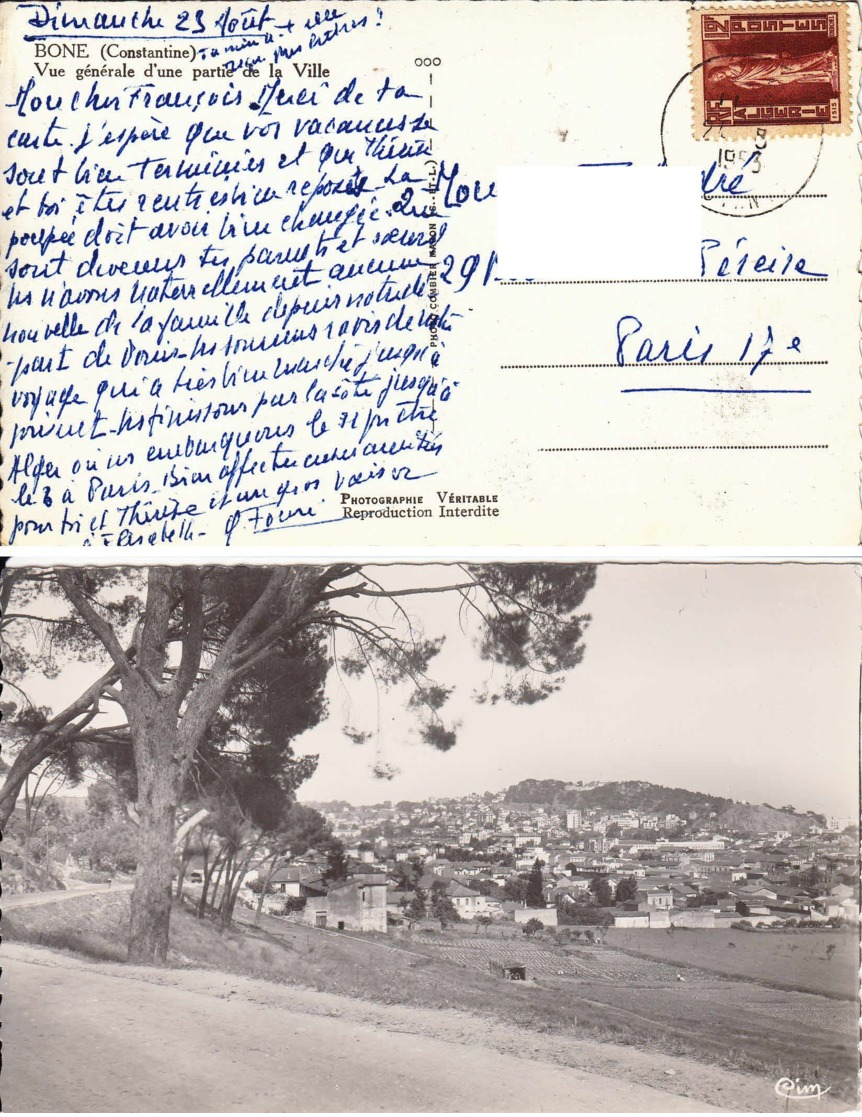 Dimanche 23 Août
BONE (Constantine)
Vue générale d'une partie de la Ville
Mon cher François. Merci de ta
carte. J'espère que vos vacances se
sont bien terminées et que Thérèse
et toi êtes rentrés bien reposés. La
poupée doit avoir bien changée. Que
sont devenus tes parents et sœurs
ns n'avons naturellement aucune
nouvelle de la famille depuis notre
part de Ns sommes ravis de notre
voyage qui a très bien marché jusqu'à
ns finissons par la côte jusqu'à
Alger où ns embarquons le 31 pr être
le 3 à Paris. Bien affectueusement à tes
pour toi et Thérèse et un gros baiser
à Elisabeth -
PHOTOGRAPHIE VÉRITABLE
Reproduction Interdite
PHOTO COMBIER MACON
POSTES
ALGERIE
RF
12F
1953
29
Péreire
Paris 17e
Cim